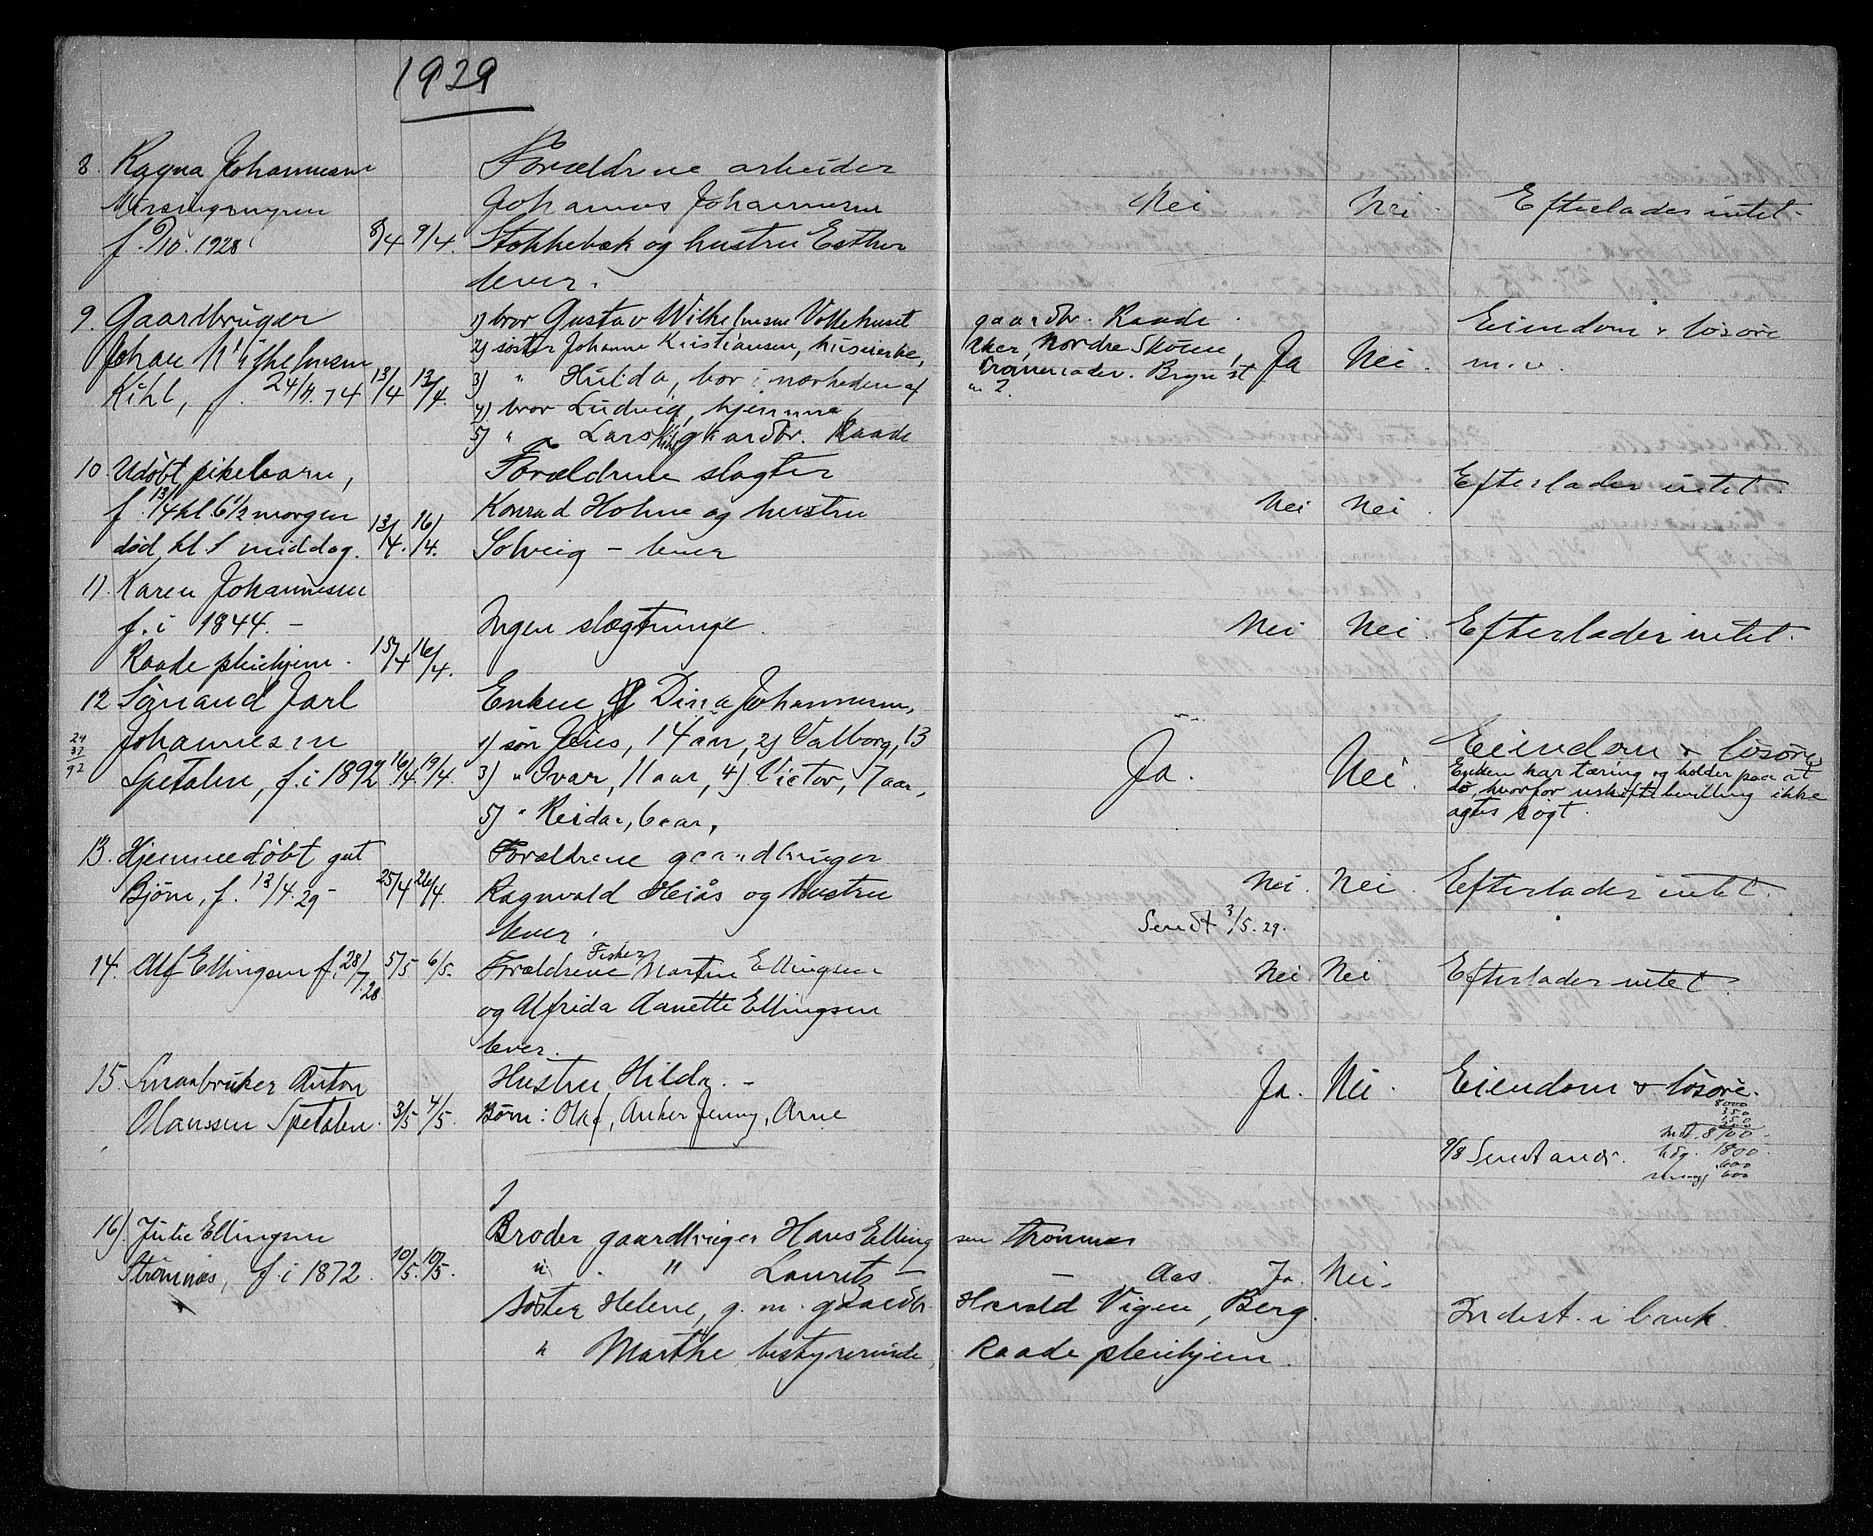 1929
8. Ragna Johannesen
f. 9/10. 1928. 8/4 9/4.
Forældrene arbeider
Johannes Johannesen
Stokkebæk og hustru Esther
lever.
Nei. Nei. Efterlader intet.
9. Gaardbruger
Johan Wilhelmsen
Kihl, f. 24/11. 74 13/4 13/4.
1) bror Gustav Wilhelmsen Vollehuset gaardbr. Raade.
2) søster Johanne Kristiansen, huseierske, Nordre Skoune,
3) " Hulda, bor i nærheden af
4) bror Ludvig, hjemme,
5) " Lars Kihl gaardbr. Raade
Ja Nei. Eiendom & løsøre
m.v.
10. Udøbt pikebarn,
f. 13/4 kl. 6 1/2 morgen
død, kl. 1 middag. 13/4. 16/4.
Forældrene slagter
Konrad Holme og hustru
Solveig - lever
Nei Nei. Efterlader intet.
11. Karen Johannesen
f. i 1844. -
Raade pleiehjem. 15/4 16/4.
Ingen slægtninge.
Nei Nei. Efterlader intet.
12 Sømand Jarl
Johannesen
Spetalen, f. i 1892. 16/4 19/4.
24
32
92
Enken Dina Johannesen,
1) søn Jens, 14 aar, 2) Valborg, 13
3) " Ivar, 11 aar, 4) Victor, 7 aar,
5) " Reidar, 6 aar,
Ja. Nei. Eiendom & løsøre
Enken har tæring og holder paa at
dø, hvorfor uskiftebevilling ikke
agtes søgt.
13. Hjemmedøbt gut
Bjørn, f. 13/4. 29 - 25/4 26/4.
Forældrene gaardbruger
Ragnvald Heiås og hustru
lever.
Nei. Nei. Efterlader intet.
Sendt 3/5. 29.
14. Alf Ellingsen f. 28/7. 28. 5/5 6/5.
Forældrene Fisker Martin Ellingsen
og Alfrida Aanette Ellingsen
lever.
Nei. Nei Efterlader intet.
15. Smaabruker Anton
Olaussen Spetalen. 3/5 4/5.
Hustru Hilda. -
Børn: Olaf, Anker Jenny, Arne
Ja. Nei. Eiendom & løsøre.
8000
350
350
8700.
1800.
600
600
9/8 Sendt
16). Julie Ellingsen
Strømnæs, f. i 1872. 10/5. 10/5.
Broder gaardbruger Hans Ellingsen Strømnæs
" " Lauritz - - Aas.
søster Helene, g. m. gaardbr. Harald Vigen, Berg.
" Marthe, bestyrerinde, Raade pleiehjem.
Ja. Nei.
Indest. i bank.